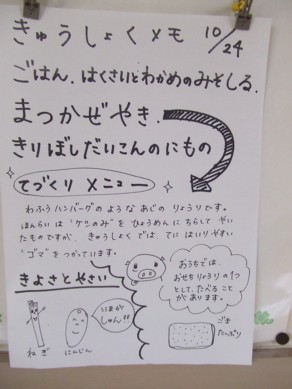 きゅうしょくメモ 10/24
ごはん、はくさいとわかめのみそしる、
まつかぜやき、
きりぼしだいこんのにもの
てづくりメニュー
わふうハンバーグのようなあじのりょうりです。
ほんらいは "ケシのみ" をひょうめんにちらしてやい
たものですが、きゅうしょくでは、てにはいりやすい
"ゴマ" をつかっています。
きよさとやさい
いまが
しゅん!!
ねぎ
にんじん
おうちでは、
おせちりょうりの1つ
として、たべること
があります。
ごま
たっぷり